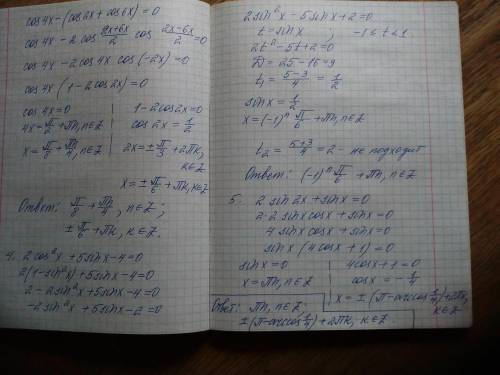 cos4x-(cos2x+cos6x)=0
cos4x-2cos (2x+6x)/2 cos (2x-6x)/2=0
cos4x-2cos4x cos(-2x)=0
cos4x(1-2cos2x)=0
cos4x=0
4x=π/2+πn, n∈Z
x=π/8+πn/4, n∈Z
1-2cos2x=0
cos2x=1/2
2x=±π/3+2πk, k∈Z
x=±π/6+πk, k∈Z
Ответ: π/8+πn/4, n∈Z;
±π/6+πk, k∈Z.
4. 2cos²x+5sinx-4=0
2(1-sin²x)+5sinx-4=0
2-2sin²x+5sinx-4=0
-2sin²x+5sinx-2=0
2sin²x-5sinx+2=0
t=sinx ; -1≤t≤1
2t²-5t+2=0
D=25-16=9
t₁=(5-3)/4=1/2
sinx=1/2
x=(-1)ⁿ π/6+πn, n∈Z
t₂=(5+3)/4=2 - не подходит
Ответ: (-1)ⁿ π/6+πn, n∈Z
5. 2sin2x+sinx=0
2·2sinxcosx+sinx=0
4sinxcosx+sinx=0
sinx(4cosx+1)=0
sinx=0
x=πn, n∈Z
4cosx+1=0
cosx=-1/4
x=±(π-arccos 1/4)+2πk, k∈Z
Ответ: πn, n∈Z;
±(π-arccos 1/4)+2πk, k∈Z